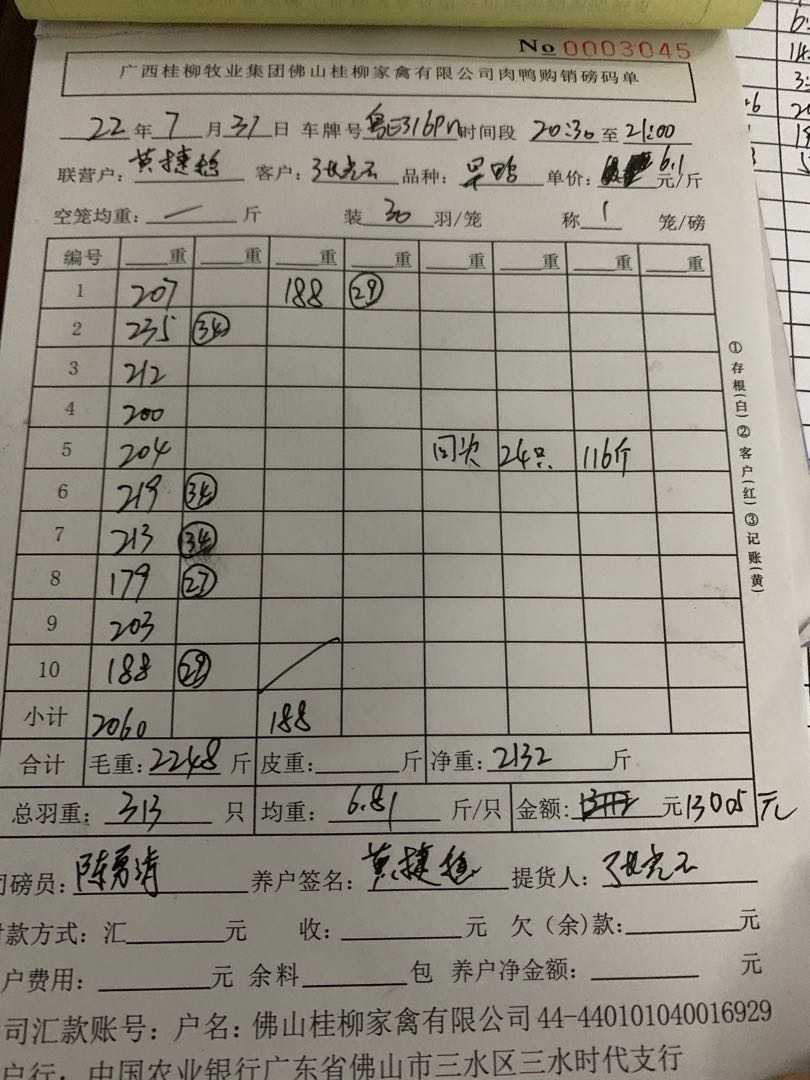 No 0003045
广西桂柳牧业集团佛山桂柳家禽有限公司肉鸭购销磅码单
22年7月31日 车牌号 粤E316PN 时间段 20:30至21:00
联营户: 黄捷 客户: 张光云 品种: 旱鸭 单价: 6.1 元/斤
空笼均重: — 斤 装 30 羽/笼 称 1 笼/磅
编号 重 重 重 重 重 重 重 重
1 207 188 29
2 235 34
3 212
4 200
5 204 回次 24只 116斤
6 219 34
7 213 34
8 179 27
9 203
10 188 29
小计 2060 188
合计 毛重: 2248 斤 皮重: 斤 净重: 2132 斤
总羽重: 313 只 均重: 6.81 斤/只 金额: 元 13005元
磅员: 陈勇涛 养户签名: 黄捷 提货人: 张光云
款方式: 汇 元 收: 元 欠(余)款: 元
户费用: 元 余料 包 养户净金额: 元
司汇款账号: 户名: 佛山桂柳家禽有限公司 44-440101040016929
户行: 中国农业银行广东省佛山市三水区三水时代支行
①存根(白)②客户(红)③记账(黄)